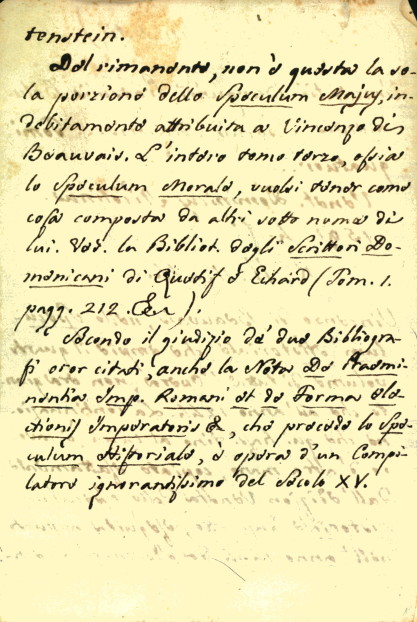 tenstein.
Del rimanente, non è questa la so-
la porzione dello Speculum Majus, in-
debitamente attribuita a Vincenzo di
Beauvais. L'intero tomo terzo, ossia
lo Speculum Morale, vuolsi tener come
cosa composta da altri sotto nome di
lui. Ved. la Bibliot. degli Scrittori Do-
menicani di Quetif e Echard (Tom. 1.
pagg. 212. &c.).
Secondo il giudizio de' due Bibliogra-
fi or or citati, anche la Nota De Praemi-
nentia Imp. Romani et de Forma Ele-
ctionis Imperatoris &, che precede lo Spe-
culum Historiale, è opera d'un Compi-
latore ignorantissimo del Secolo XV.